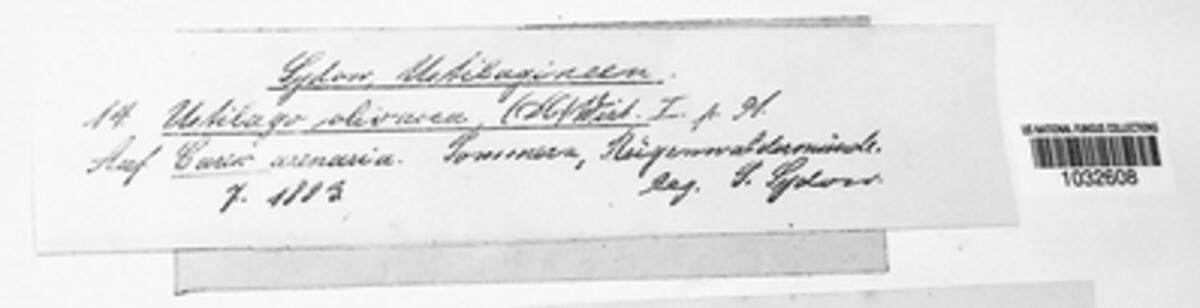 Sydow, Ustilagineen.
14. Ustilago olivacea, Wint. I. p. 91.
Auf Carex arenaria. Pommern, Rügenwaldermünde.
7. 1893 leg. P. Sydow.
US NATIONAL FUNGUS COLLECTIONS
1032608